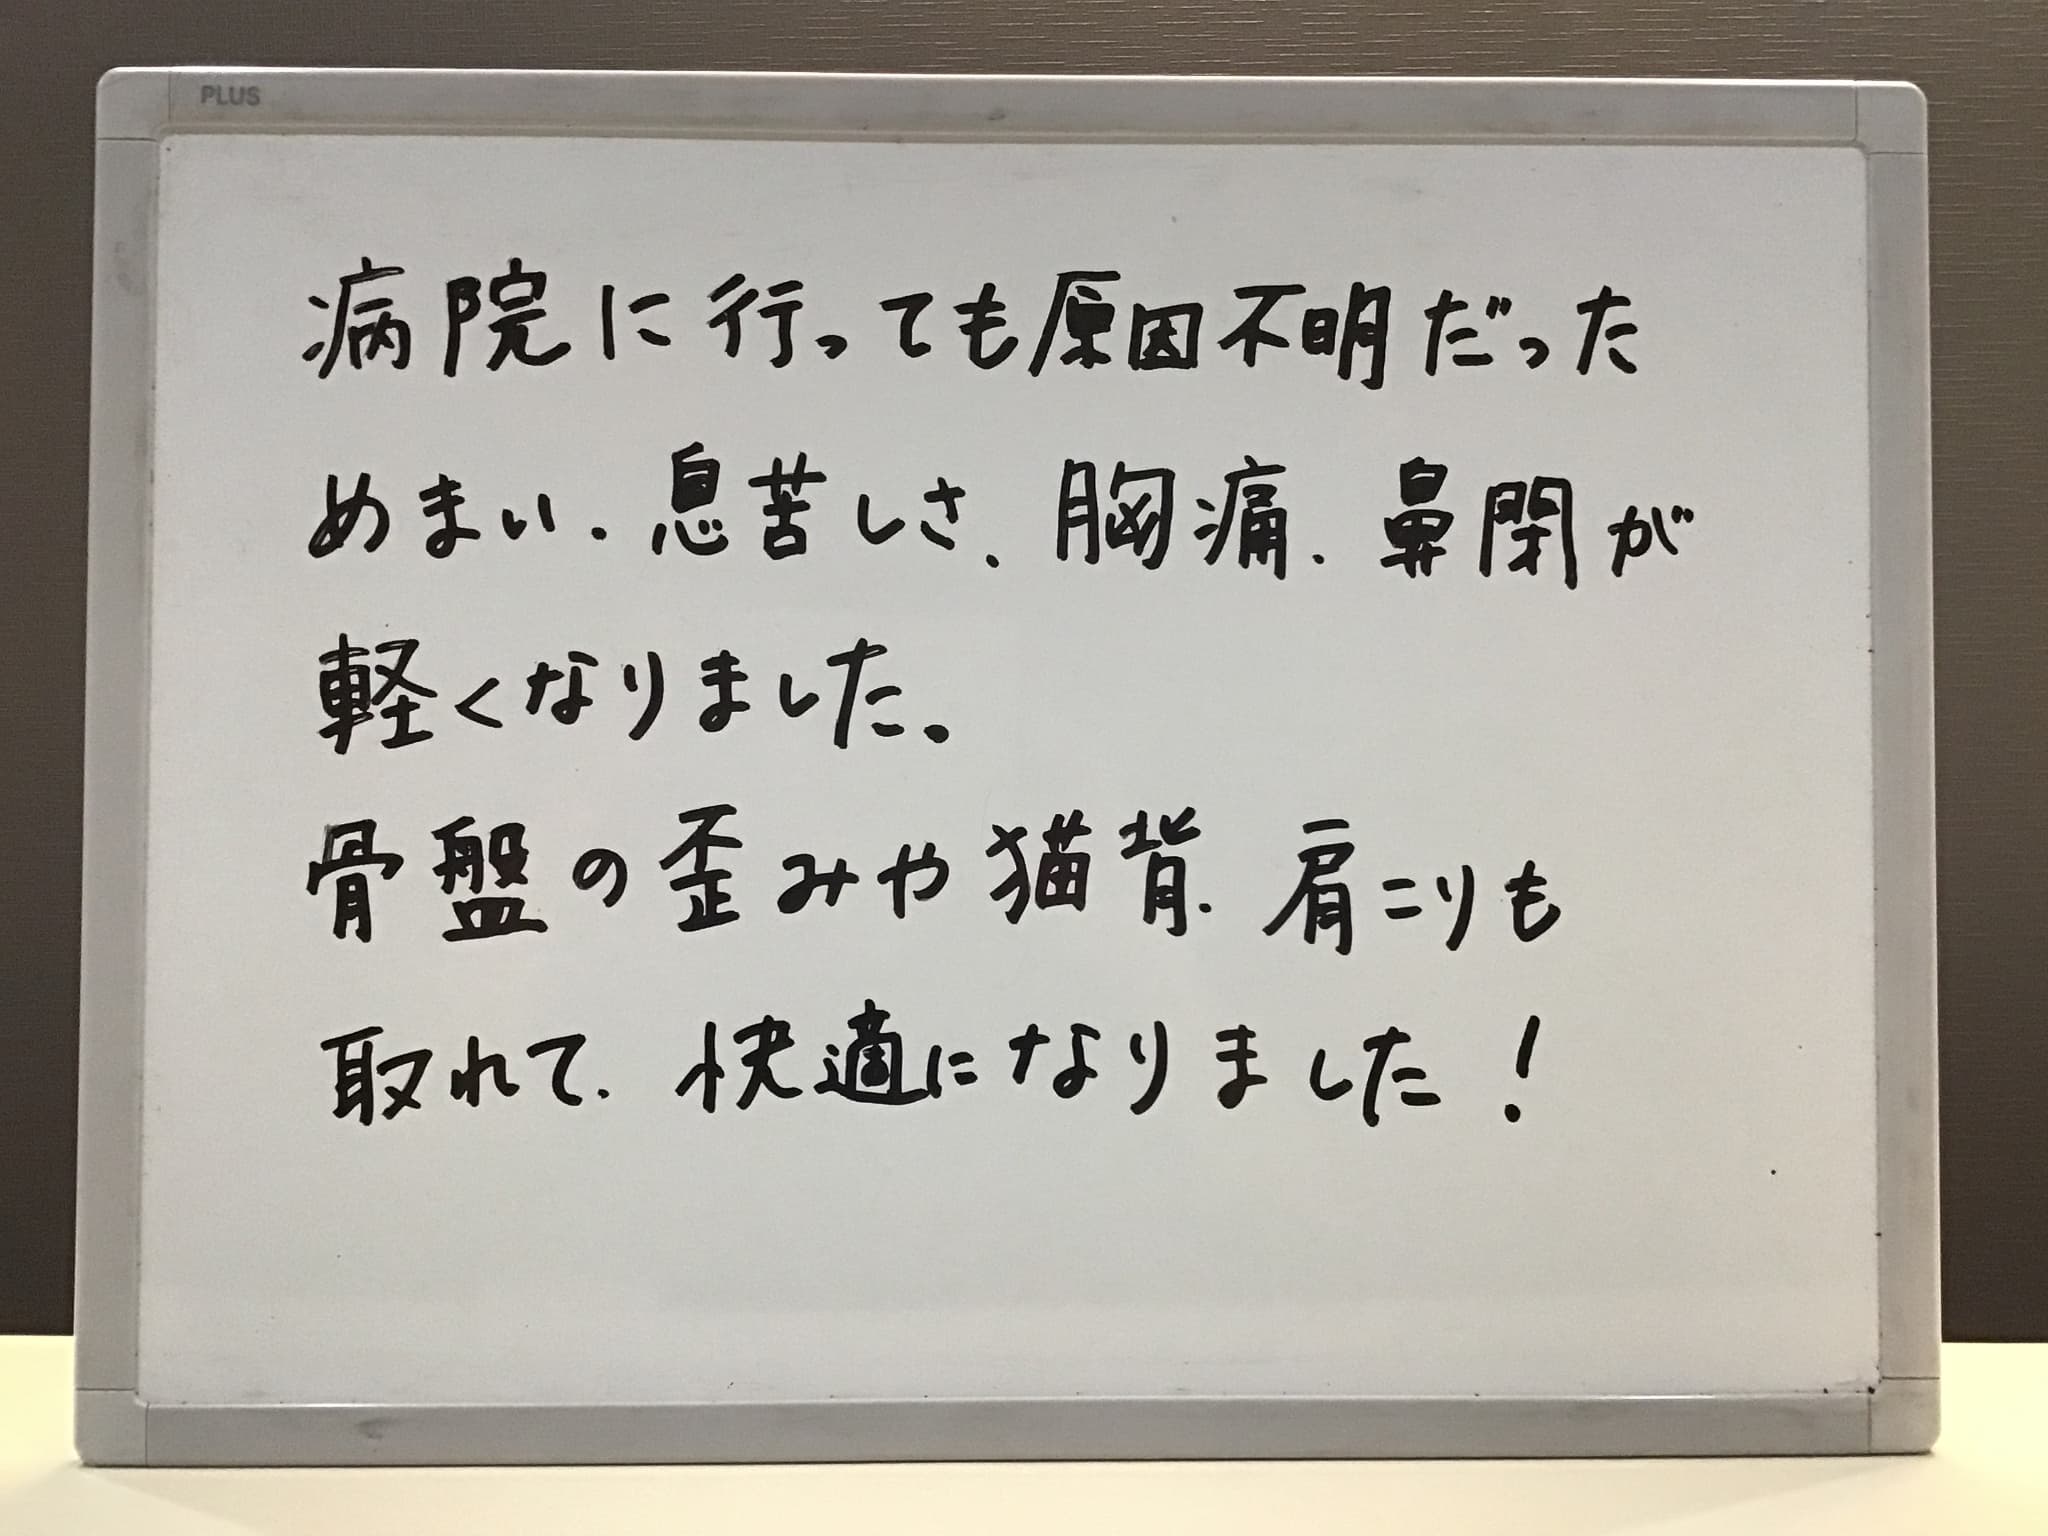 PLUS
病院に行っても原因不明だった
めまい、息苦しさ、胸痛、鼻閉が
軽くなりました。
骨盤の歪みや猫背、肩こりも
取れて、快適になりました！